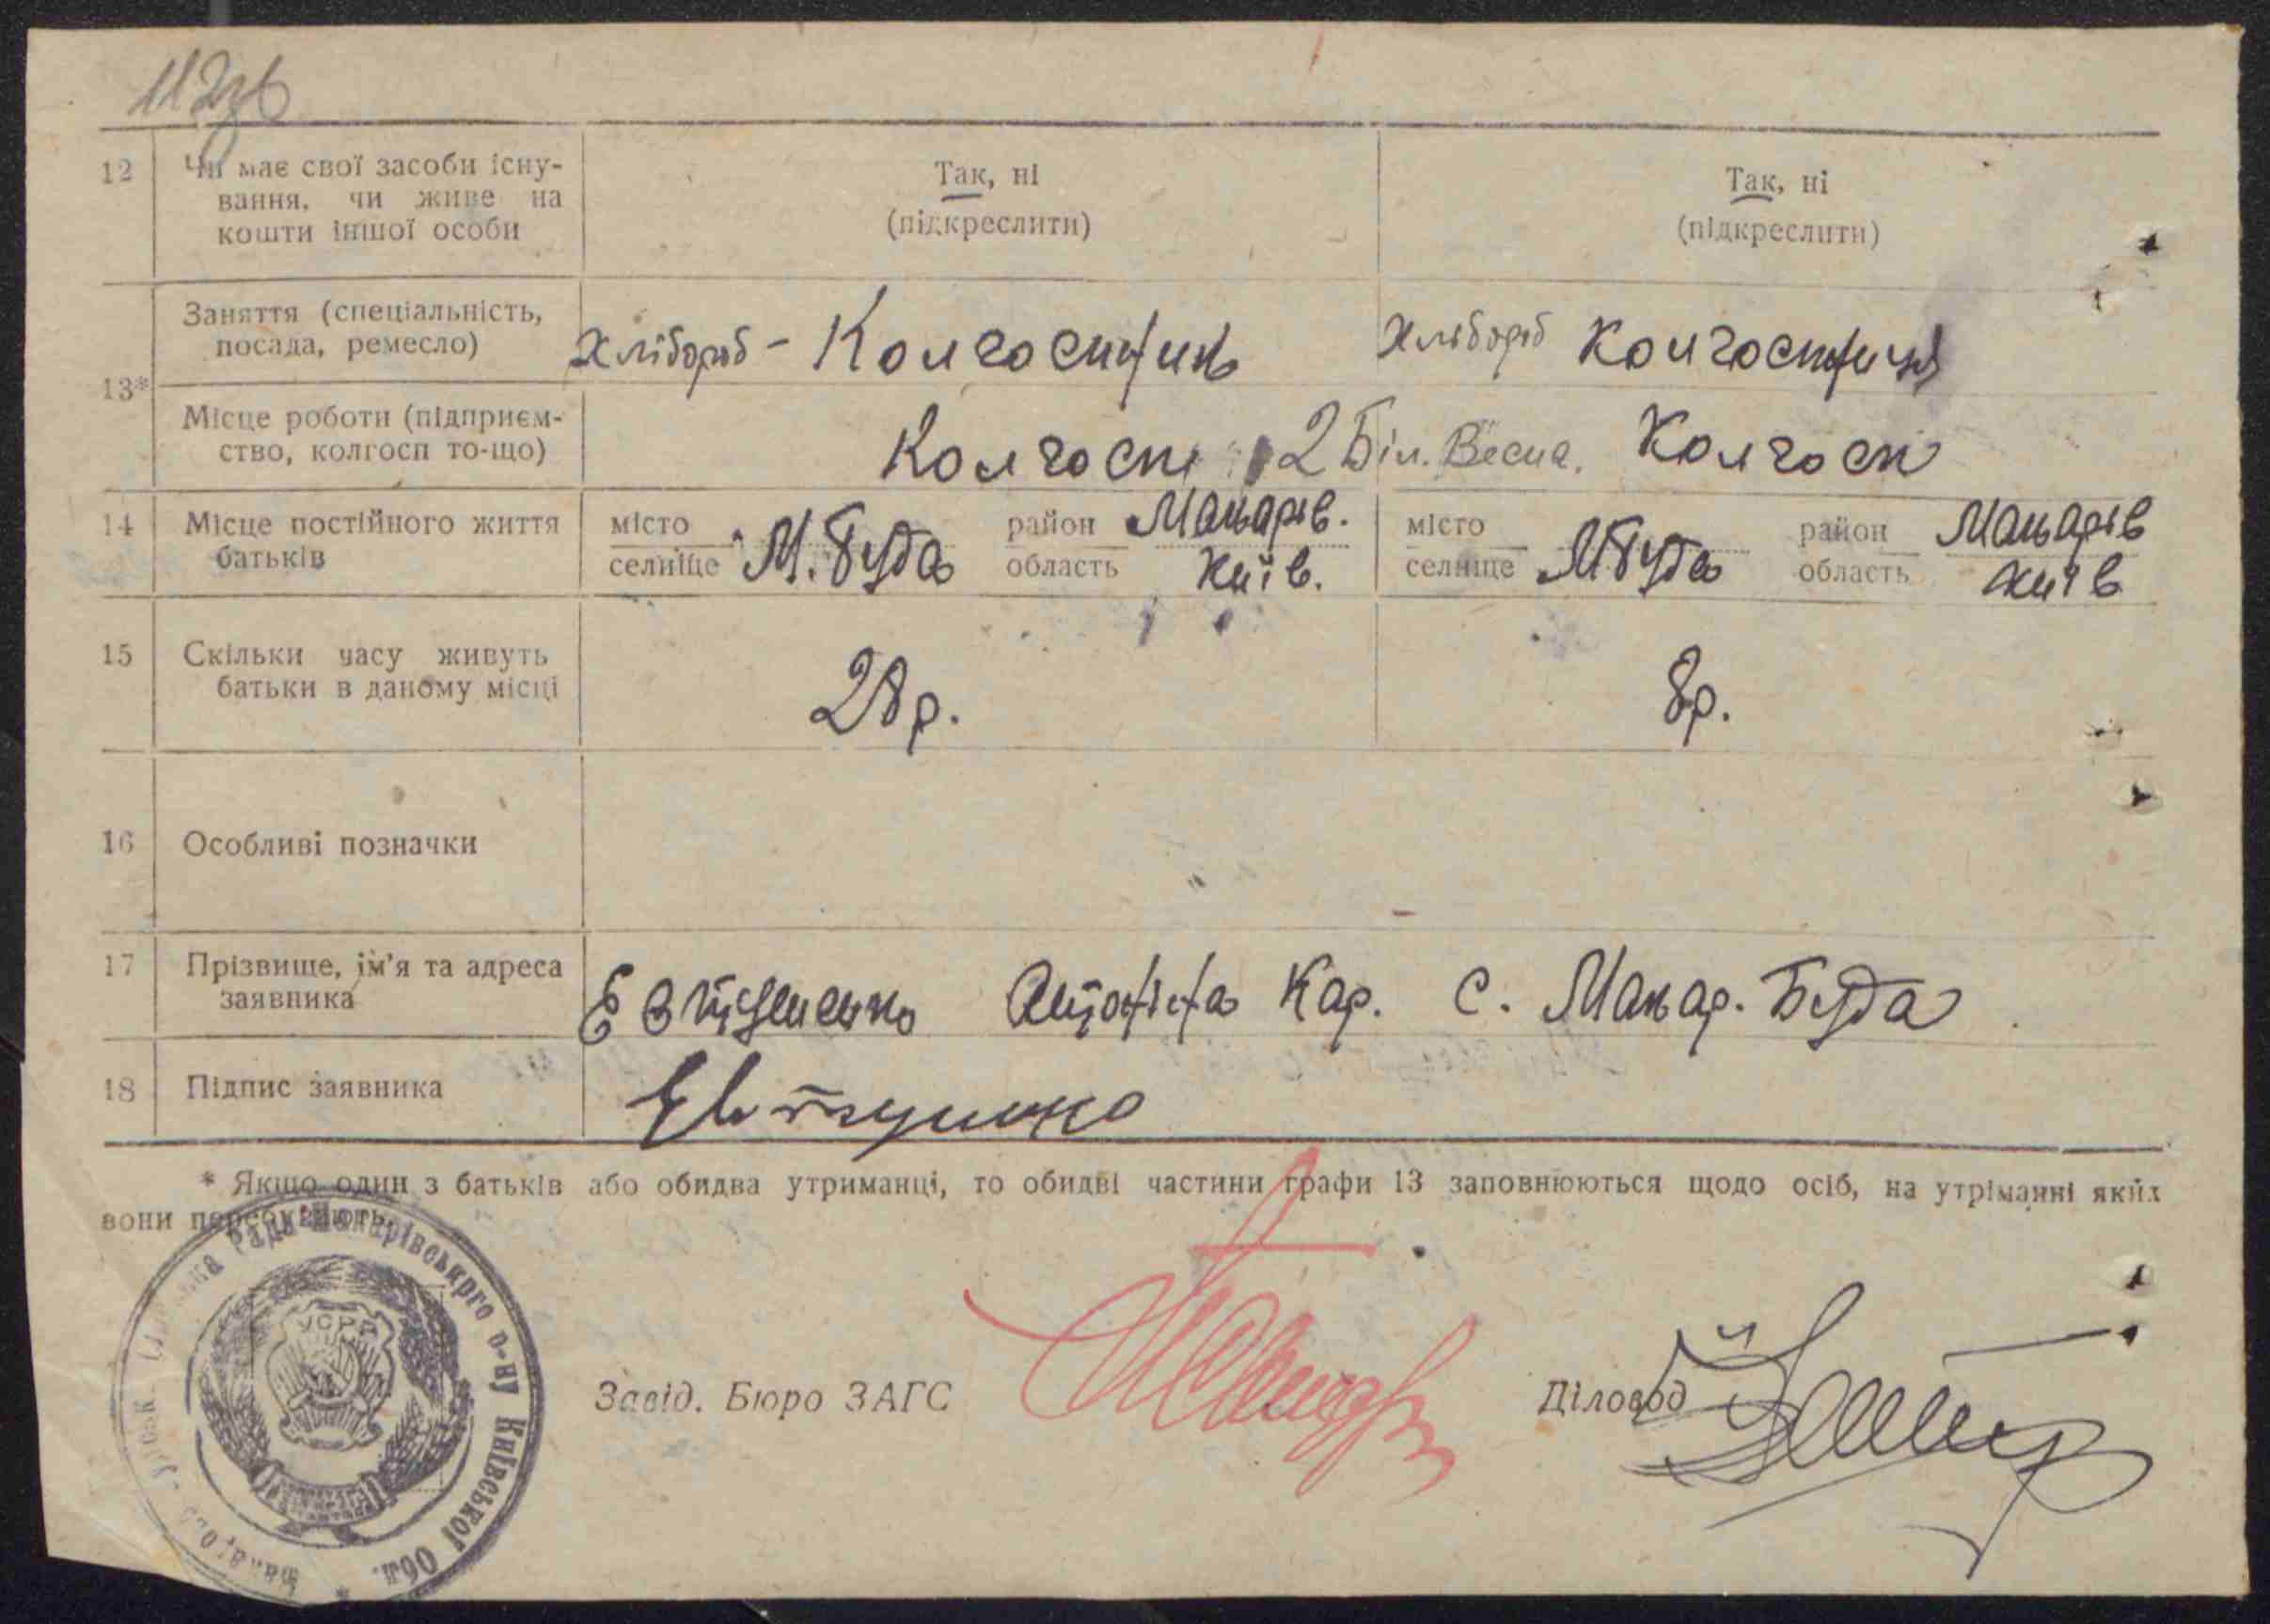 112зв
12 Чи має свої засоби існу-
вання, чи живе на
кошти іншої особи
Так, ні
(підкреслити)
Так, ні
(підкреслити)
13*
Заняття (спеціальність,
посада, ремесло)
Хлібороб - Колгоспник
Хлібороб Колгоспниця
Місце роботи (підприєм-
ство, колгосп то-що)
Колгосп 2 Біл. Весна.
Колгосп
14 Місце постійного життя
батьків
місто
селище М. Буда
район Макарів.
область Київ.
місто
селище М Буда
район Макарів
область Київ
15 Скільки часу живуть
батьки в даному місці
28 р.
8 р.
16 Особливі позначки
17 Прізвище, ім'я та адреса
заявника
Евтушенко Кар. С. Макар. Буда
18 Підпис заявника
Евтушенко
* Якщо один з батьків або обидва утриманці, то обидві частини графи 13 заповнюються щодо осіб, на утріманні яких
вони перебувають.
Рада Макарівського р-ну Київської Обл.
УСРР
Завід. Бюро ЗАГС
Діловод